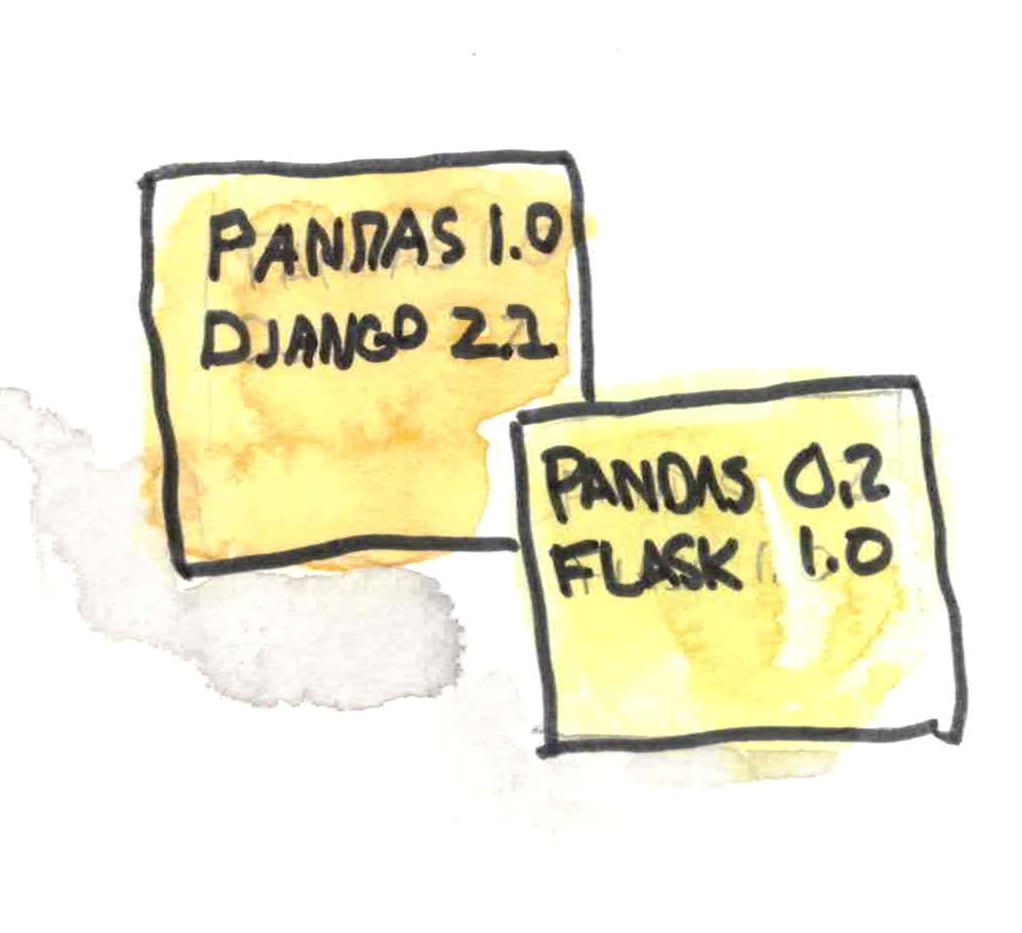 PANDAS 1.0
DJANGO 2.1
PANDAS 0.2
FLASK 1.0